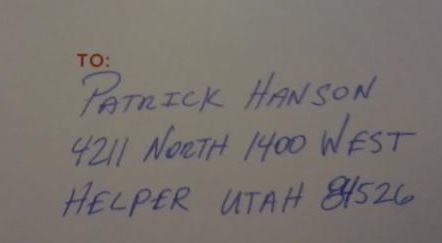 TO:
PATRICK HANSON
4211 NORTH 1400 WEST
HELPER UTAH 84526